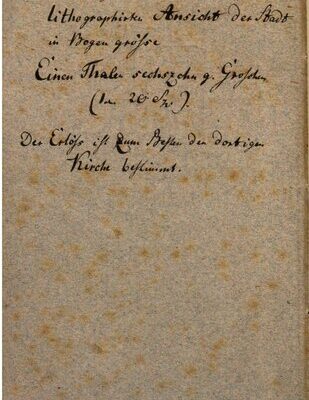 lithographirte Ansicht der Stadt
in Bogen grösse
Einen Thaler sechszehn g. Groschen
(1 20 S).
Der Erlös ist zum Besten der dortigen
Kirche bestimmt.